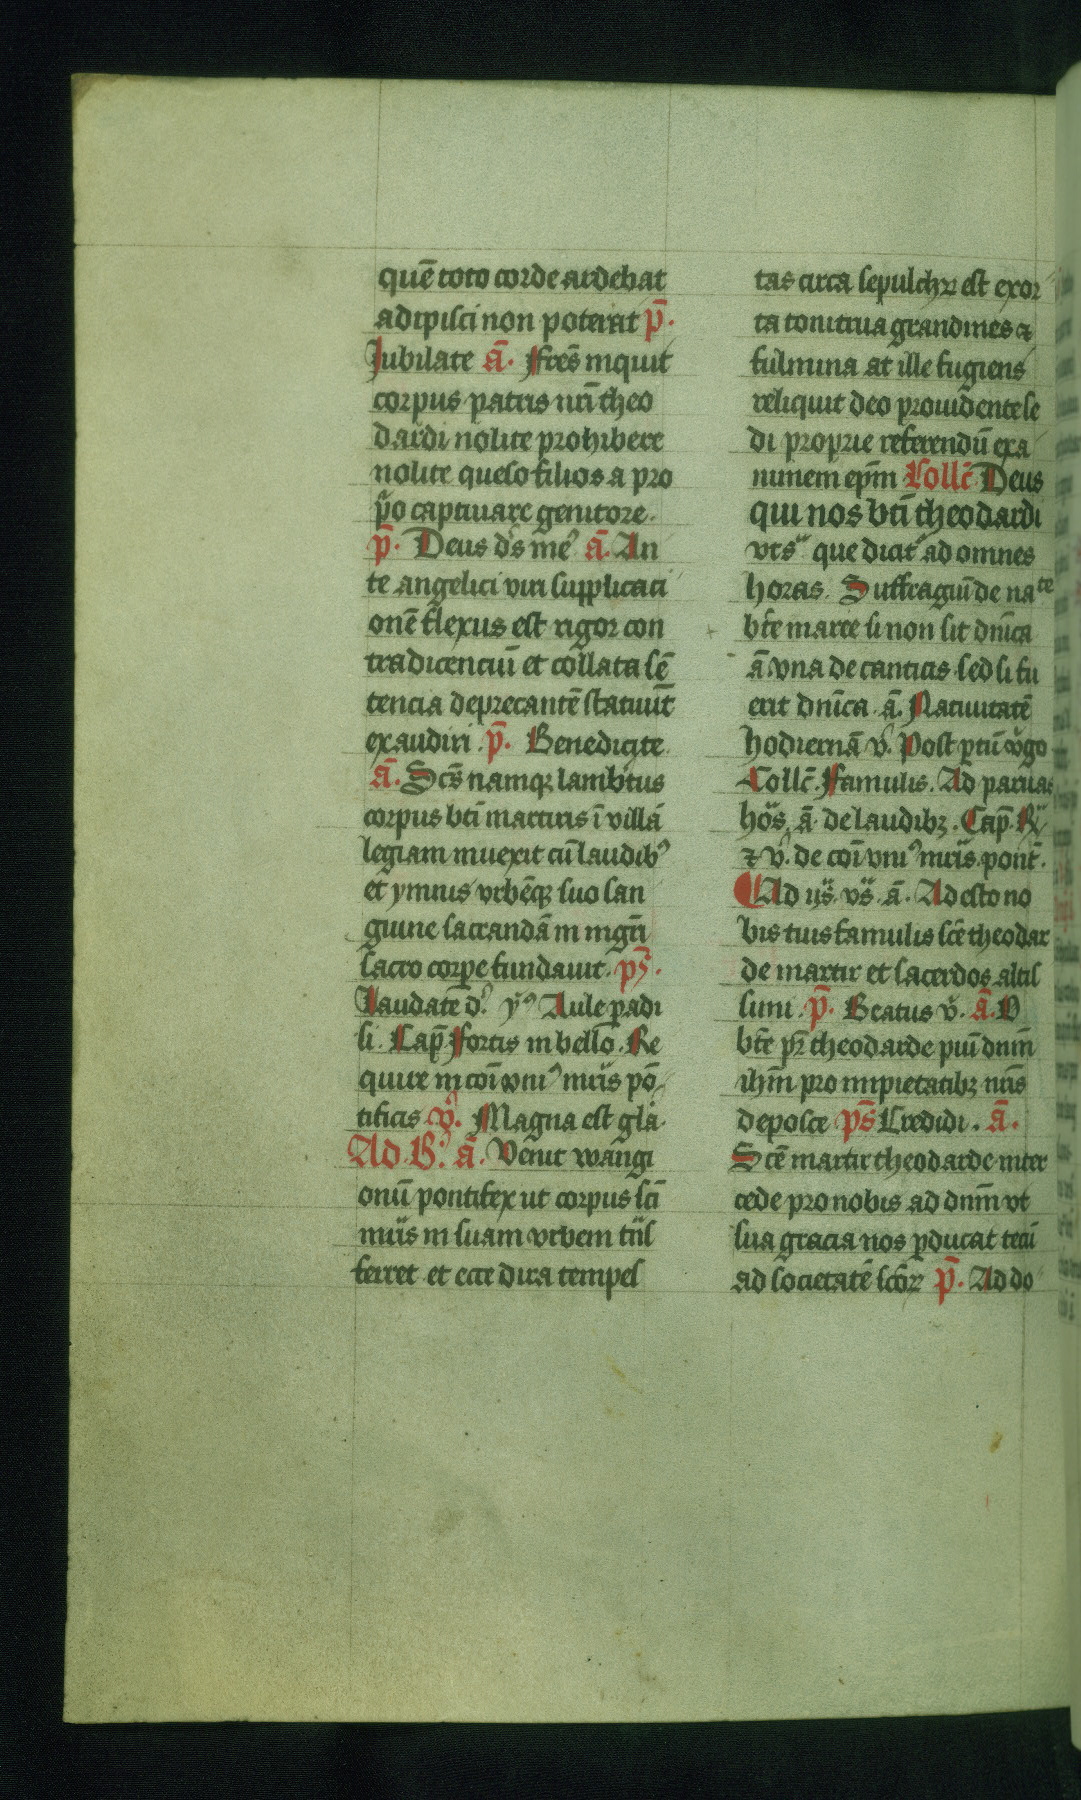 quē toto corde ardebat
adipisci non poterat p̄.
Jubilate ā. Fr̄es inquit
corpus patris nr̄i theo
dardi nolite prohibere
nolite queso filios a pro
p̏o captiuare genitore.
p̄. Deus d̄s me᾽ ā. An
te angelici viri supplicaci
onē flexus est rigor con
tradicenciū et collata sē
tencia deprecantē statuūt
exaudiri. p̄. Benedicite.
ā. Sc̄s namqꝫ lambt᾽tus
corpus bt̄i martiris ī villā
legiam inuexit cū laudib᾽
et ymnis vrbēqꝫ suo san
guine sacrandā in mgr̄i
sacro corpe fundauit. ps̄.
Laudate d᾽. y᾽ Aule padi
si. Cap̄ Fortis in bello. Re
quire in coī vni᾽ mr̄is pō
tificis v̄. Magna est gl̄a.
Ad B᾽. ā. Venit wangi
onū pontifex ut corpus sc̄i
mr̄is in suam vrbem trās
ferret et ecce dira tempes
tas circa sepulchrꝝ est exor
ta tonitrua grandines ⁊
fulmina at ille fugiens
reliquit deo prouidente se
di proprie referendū exa
nimem ep̄m Collc̄ Deus
qui nos bt̄i theodardi
vts̄ que dicit᾽ ad omnes
horas. Suffragiū de na te
bt̄e marie si non sit dn̄ica
ā vna de canticis sed si fu
erit dn̄ica. ā. Natiuitatē
hodiernā v̄. Post ptū v᾽go
Collc̄. Famulis. Ad paruas
hōs. ā de laudibꝫ. Cap̄. R᾽
⁊ v᾽. de coī vni᾽ mr̄is pont̄.
Ad ijs̄. vs̄. ā. Adesto no
bis tuis famulis sc̄e theodar
de martir et sacerdos altis
simi. p̄. Beatus v̄. ā. O
bt̄e pr̄ theodarde piū dnm̄
ihm̄ pro impietatibꝫ nr̄is
deposce ps̄ Credidi. ā.
Sc̄e martir theodarde inter
cede pro nobis ad dnm̄ vt
sua gracia nos pducat tecū
ad societatē sc̄oꝝ p̄. Ad do